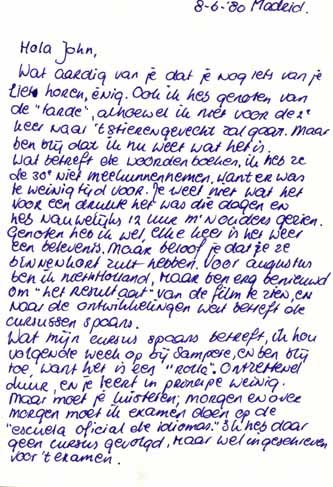 8-6-'80 Madrid.
Hola John,
Wat aardig van je dat je nog iets van je
liet horen, énig. Ook ik heb genoten van
de "tarde", alhoewel ik niet voor de 2e
keer naar 't stierengevecht zal gaan. Maar
ben blij dat ik nu weet wat het is.
Wat betreft de woordenboeken, ik heb ze
de 30e niet mee kunnen nemen, want er was
te weinig tijd voor. Je weet niet wat het
voor een drukte het was die dagen en
heb nauwelijks 12 uur m'n ouders gezien.
Genoten heb ik wel, elke keer is het weer
een belevenis. Maar beloof je dat je ze
binnenkort zult hebben. Voor augustus
ben ik niet in Holland, maar ben erg benieuwd
om "het resultaat" van de film te zien, en
naar de ontwikkelingen wat betreft de
cursussen spaans.
Wat mijn cursus spaans betreft, ik hou
volgende week op bij Sampere, en ben blij
toe, want het is een "rollo". Ontzettend
duur, en je leert in principe weinig.
Maar moet je luisteren; morgen en over
morgen moet ik examen doen op de
"escuela oficial de idiomas." Ik heb daar
geen cursus gevolgd, maar wel ingeschreven
voor 't examen.